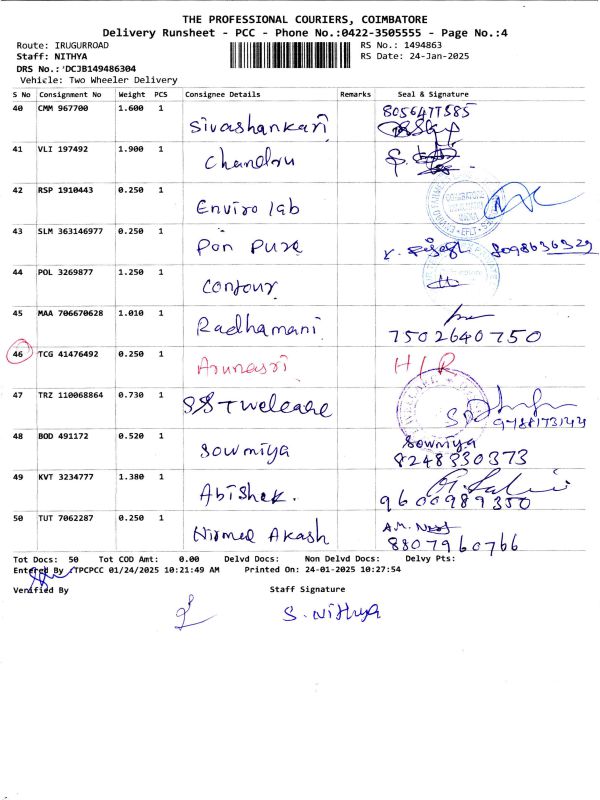 THE PROFESSIONAL COURIERS, COIMBATORE
Delivery Runsheet - PCC - Phone No.:0422-3505555 - Page No.:4
Route: IRUGURROAD
RS No.: 1494863
Staff: NITHYA
RS Date: 24-Jan-2025
DRS No.:'DCJB149486304
Vehicle: Two Wheeler Delivery
S No Consignment No Weight PCS Consignee Details Remarks Seal & Signature
40 CMM 967700 1.600 1 Sivashankari 8056477585
41 VLI 197492 1.900 1 Chandru
42 RSP 1910443 0.250 1 Enviro lab
43 SLM 363146977 0.250 1 Pon Pure 8098636329
44 POL 3269877 1.250 1 Contour
45 MAA 706670628 1.010 1 Radhamani 7502640750
46 TCG 41476492 0.250 1 Arunasri H/R
47 TRZ 110068864 0.730 1 SST welcare
48 BOD 491172 0.520 1 Sowmiya Sowmiya
8248330373
49 KVT 3234777 1.380 1 Abishek. 9600989350
50 TUT 7062287 0.250 1 Nirmal Akash 8807960766
Tot Docs: 50 Tot COD Amt: 0.00 Delvd Docs: Non Delvd Docs: Delvy Pts:
Entered By :TPCPCC 01/24/2025 10:21:49 AM Printed On: 24-01-2025 10:27:54
Verified By Staff Signature
S. Nithya